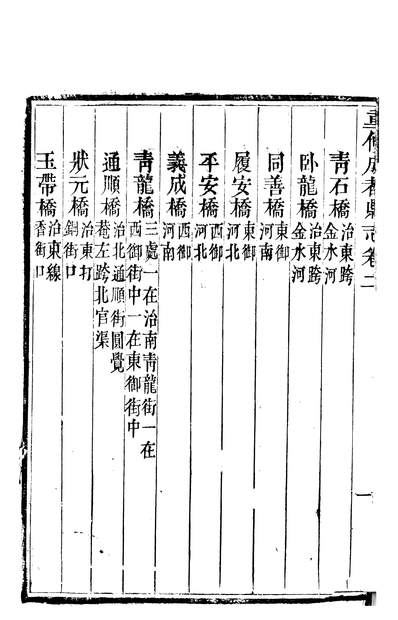 重修成都縣志卷二
青石橋 治東跨金水河
臥龍橋 治東跨金水河
同善橋 東御河南
履安橋 東御河北
平安橋 西御河北
義成橋 西御河南
青龍橋 三處一在治南青龍街一在西御街中一在東御街中
通順橋 治北通順街圓覺菴左跨北官渠
狀元橋 治東打銅街口
玉帶橋 治東線香街口
一